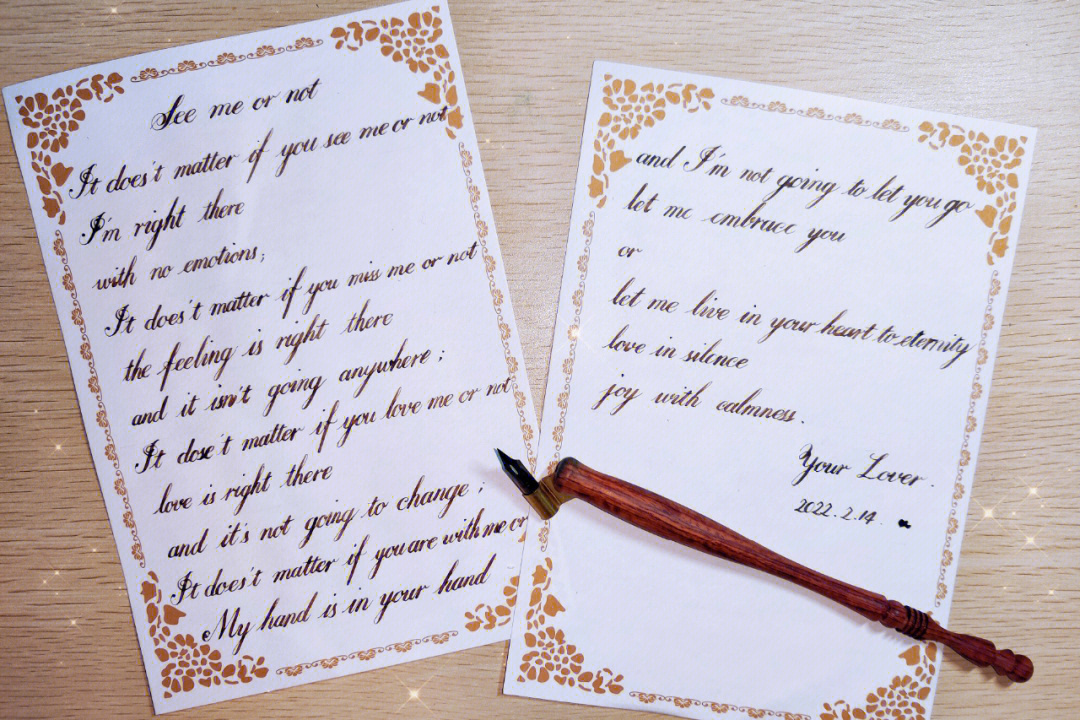 See me or not
It does't matter if you see me or not
I'm right there
with no emotions;
It does't matter if you miss me or not
the feeling is right there
and it isn't going anywhere;
It dose't matter if you love me or not
love is right there
and it's not going to change;
It does't matter if you are with me or
My hand is in your hand
and I'm not going to let you go
let me embrace you
or
let me live in your heart to eternity
love in silence
joy with calmness.
Your Lover.
2022.2.14.